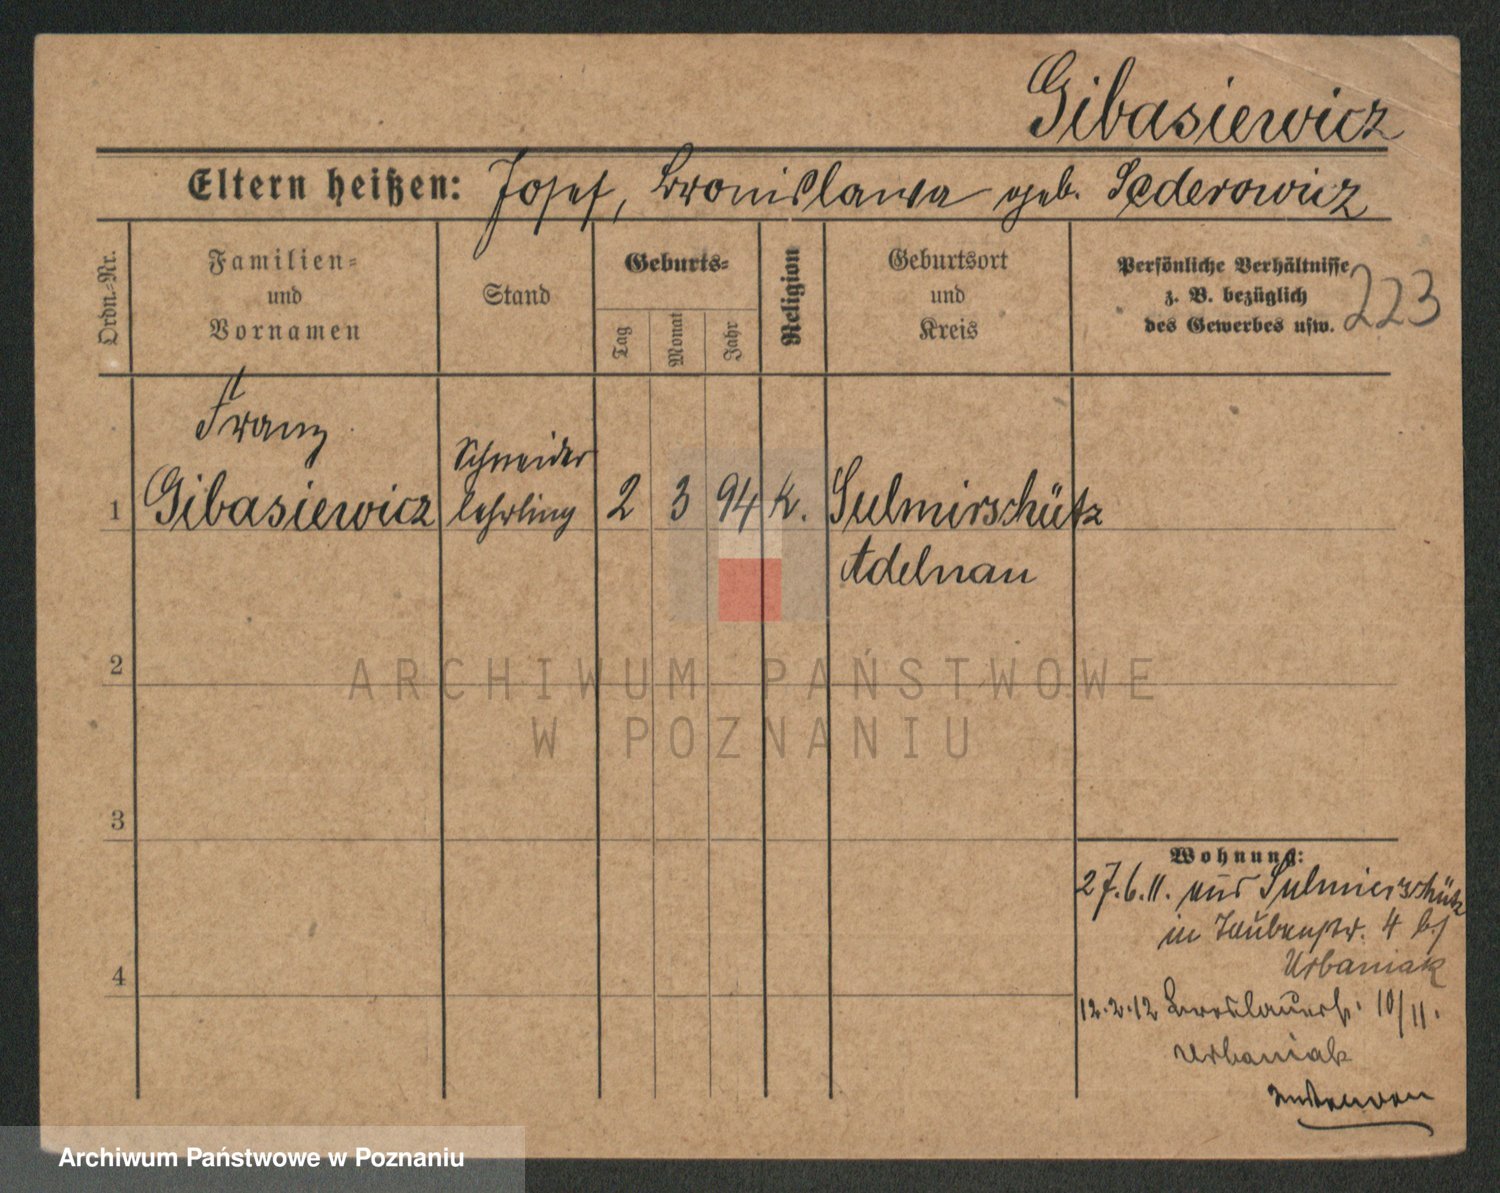 Gibasiewicz
Eltern heißen: Josef, Bronislawa geb. Sederowicz
Ordn.-Nr.
Familien-
und
Vornamen
Stand
Geburts-
Tag
Monat
Jahr
Religion
Geburtsort
und
Kreis
Persönliche Verhältnisse
z. B. bezüglich
des Gewerbes usw.
223
Franz
1 Gibasiewicz
Schneider
lehrling
2 3 94 K.
Sulmirschütz
Adelnau
2
3
4
Wohnung:
27.6.11. aus Sulmierschütz
in Taubenstr. 4 bei
Urbaniak
12.2.12 Breslauerstr. 10/11.
Urbaniak
ARCHIWUM PAŃSTWOWE
W POZNANIU
Archiwum Państwowe w Poznaniu